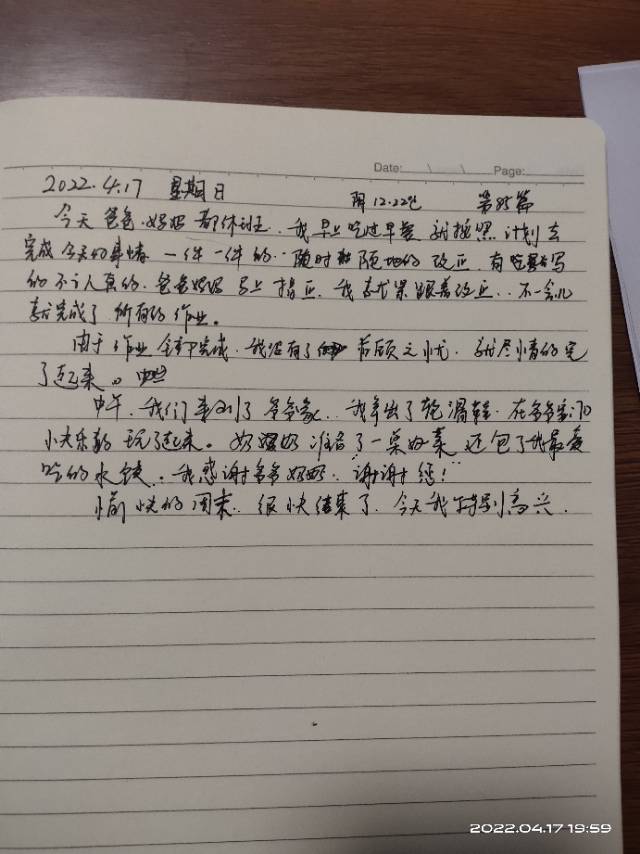 Date: Page:
2022.4.17 星期日 阴 12-22℃ 第85篇
今天爸爸、妈妈都休班、我早上吃过早餐 就按照计划去
完成今天的事情 一件一件的、随时随地的改正、有些书写
的不认真的、爸爸妈妈马上指正、我就跟着改正、不一会儿
就完成了所有的作业。
由于作业全部完成、我没有了后顾之忧、就尽情的完
了起来。
中午、我们来到了爷爷家、我拿出了轮滑鞋、在
小广乐的玩了起来。奶奶准备了一桌好菜 还包了我最爱
吃的水饺、我感谢爷爷奶奶、谢谢您!
愉快的周末、很快结束了、今天我特别高兴、
2022.04.17 19:59